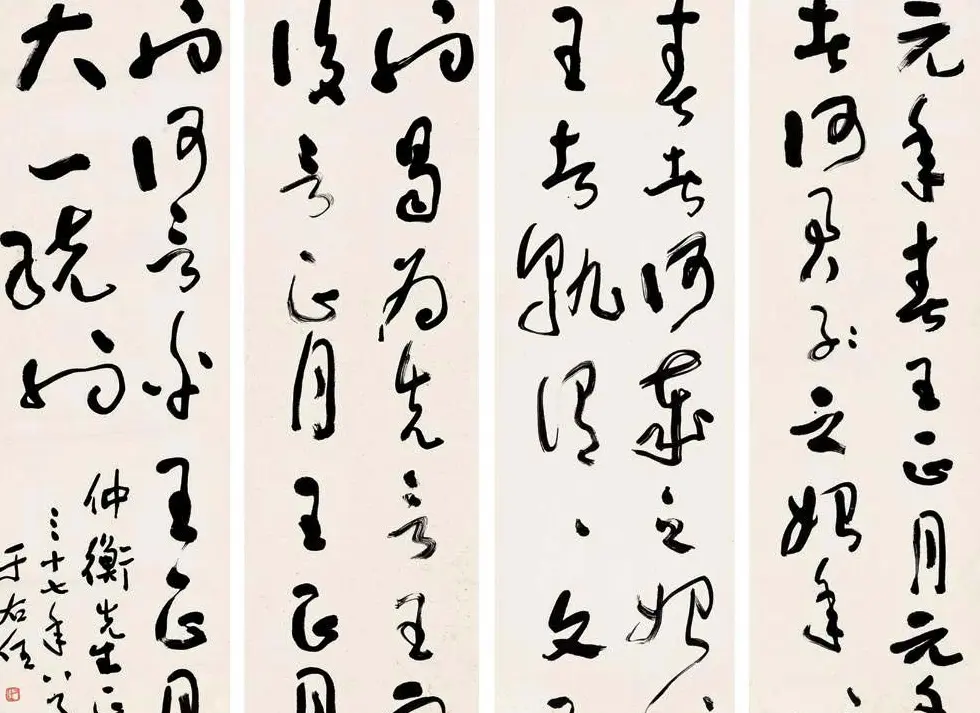 元年春王正月元年
者何君子之始年
春者何歲之始
王者孰謂〻文王
也曷為先言王而
後言正月王正月
也何言乎王正月
大一統也
仲衡先生正
三十七年八月
于右任